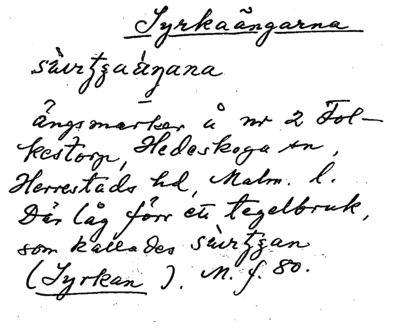 Syrkaängarna
ängsmarker å nr 2 Fol-
kestorp, Hedeskoga sn,
Herrestads hd, Malm. l.
Där låg förr ett tegelbruk,
som kallades
(Syrkan). M. f. 80.